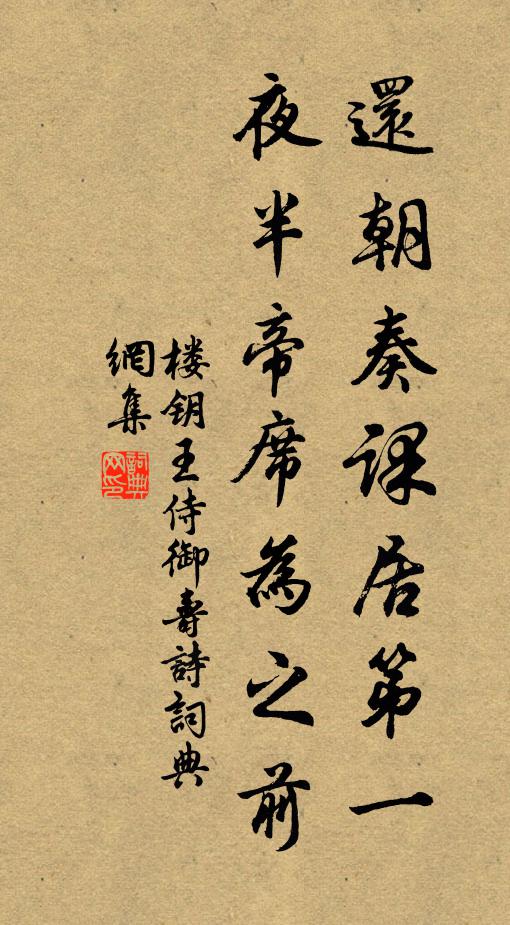 還朝奏課居第一
夜半帝席為之前
楼钥王侍御壽詩詞典
網集
詞典网印